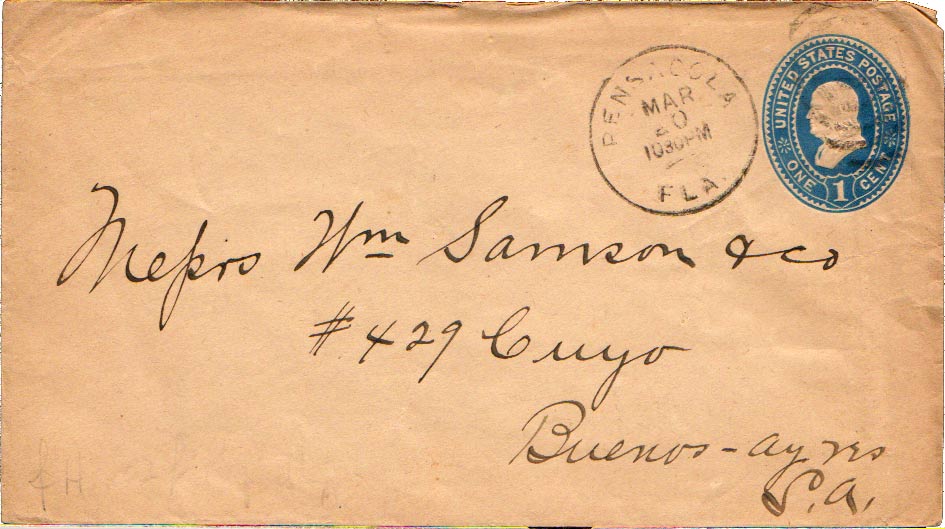 PENSACOLA
MAR
20
1030PM
FLA.
UNITED STATES POSTAGE
ONE 1 CENT
Messrs Wm Samson & co
# 429 Cuyo
Buenos-ayres
S.A.